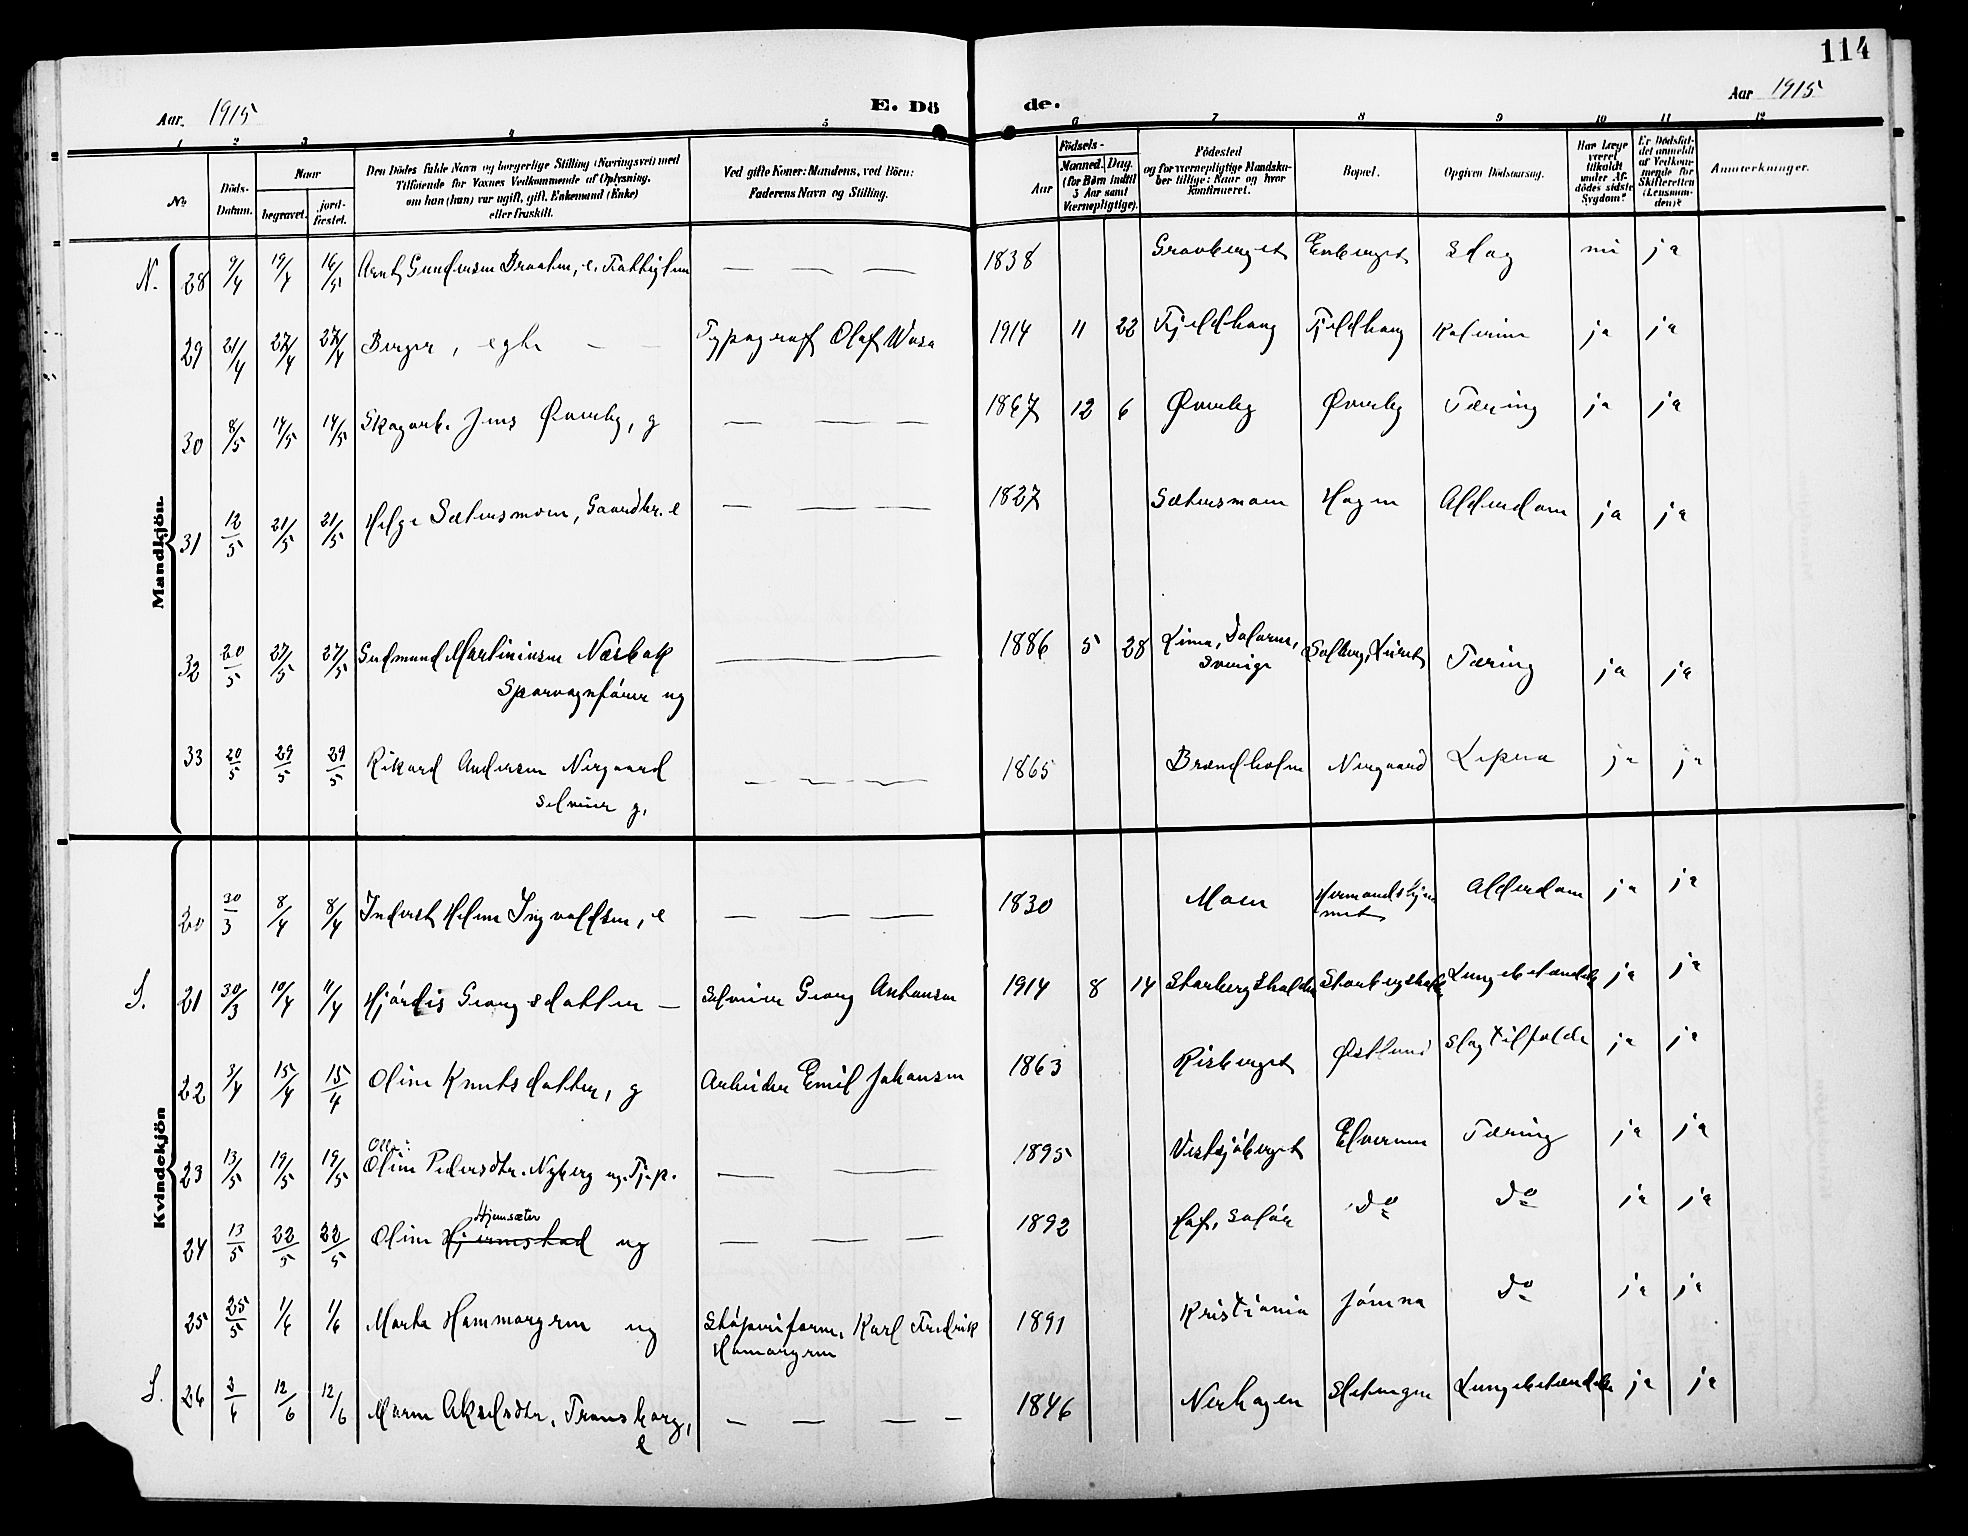 114
Aar. 1915 E. Dö de. Aar 1915
1 2 3 4 5 6 7 8 9 10 11 12
No. Döds-Datum. Naar begravet. jord-fæstet. Den Dödes fulde Navn og borgerlige Stilling (Næringsvei) med Tilföiende for Voxnes Vedkommende af Oplysning, om han (hun) var ugift, gift, Enkemand (Enke) eller fraskilt. Ved gifte Koner: Mandens, ved Börn: Faderens Navn og Stilling. Födsels- Aar Maaned. Dag. (for Börn indtil 5 Aar samt Værnepligtige). Födested og for værnepligtige Mandskaber tillige: Naar og hvor konfirmeret. Bopæl. Opgiven Dödsaarsag. Har Læge været tilkaldt under Afdödes sidste Sygdom? Er Dödsfaldet anmeldt af Vedkommende for Skifteretten (Lensmanden)? Anmerkninger.
Mandkjön.
N. 28 9/4 19/4 16/5 Arnt Gundersen Braaten, e. Fattiglem — — — 1838 Gravberget Enberget Slag nei ja
29 21/4 27/4 27/4 Berger, egte — — Typograf Olaf Wasa 1914 11 22 Fjeldhaug Fjeldhaug ja ja
30 8/5 14/5 14/5 Skogarb. Jens Øverby, g — — — 1867 12 6 Øverby Øverby Tæring ja ja
31 12/5 21/5 21/5 Helge Sætersmoen, Gaardbr. e — — — 1827 Sætersmoen Hagen Alderdom ja ja
32 20/5 27/5 27/5 Gudmund Martiniusen Næsbak — — — 1886 5 28 Lima, Dalarne, Solberg, Tæring ja ja
Sporvognfører ug Sverige
33 20/5 29/5 29/5 Rikard Andersen Nergaard — — — 1865 Brændholen Nergaard Lepra ja ja
Selveier g,
Kvindekjön
20 30/3 8/4 8/4 Inderst Helene Ingvaldsen, e — — — 1830 Moen Hermandskjenn Alderdom ja ja
S. 21 30/3 10/4 11/4 Hjørdis Georgsdatter — Selveier Georg Antonsen 1914 8 14 Storbergsholen Storbergsholen Lungebetændelse ja ja
22 3/4 15/4 15/4 Oline Knutsdatter, g Arbeider Emil Johansen 1863 Risberget Østlund Slagtilfælde ja ja
23 13/5 19/5 19/5 Oline Pedersdtr. Nyberg ug. Tj.p. — — 1895 Vestsjøberget Elverum Tæring ja ja
Hjemsæter
24 13/5 22/5 22/5 Oline Hjermstad ug — — — 1892 Hof, Solør do do ja ja
25 25/5 1/6 1/6 Marta Hammargren ug Støperiform. Karl Fredrik 1891 Kristiania Jømna do ja ja
Hamargren
S. 26 3/6 12/6 12/6 Maren Akselsdtr. Transborg, — — — — 1846 Nerhagen Sletengen Lungebetændelse ja ja
e